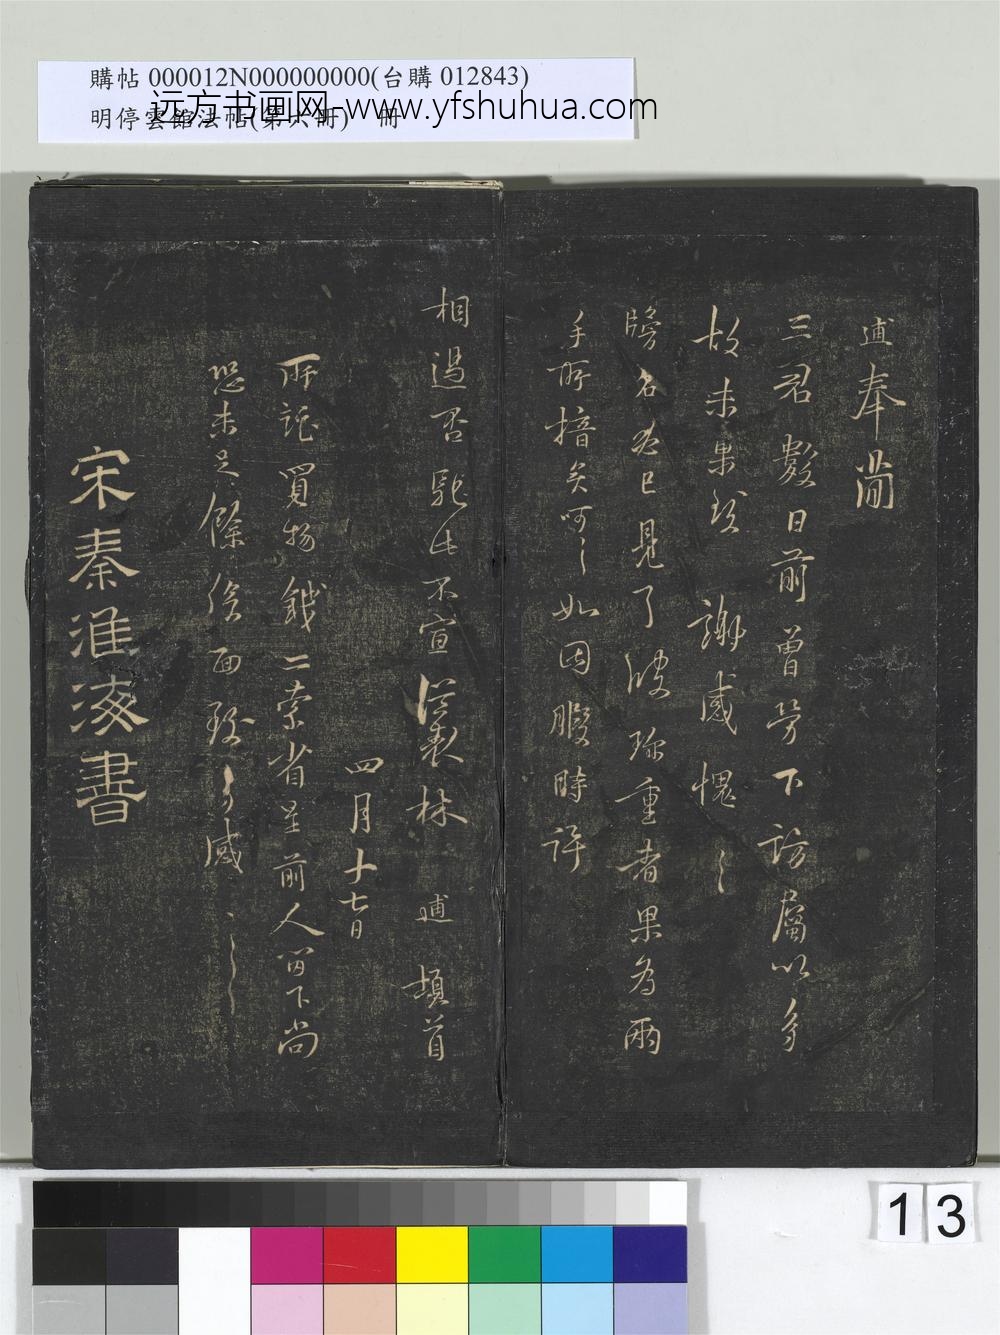 購帖 000012N000000000(台購 012843)
明停雲館法帖(第六冊) 冊
远方书画网-www.yfshuhua.com
逋奉簡
三君數日前曾勞下訪屬以多
故未果 謝感愧〻
牓名必已見了 珍重者果為兩
手所揞矣呵〻如因暇時許
相過否 不宣 林 逋 頓首
四月十七日
所託買物錢二索省呈前人留下尚
恐未足餘俟面致多感〻〻
宋秦淮海書
13